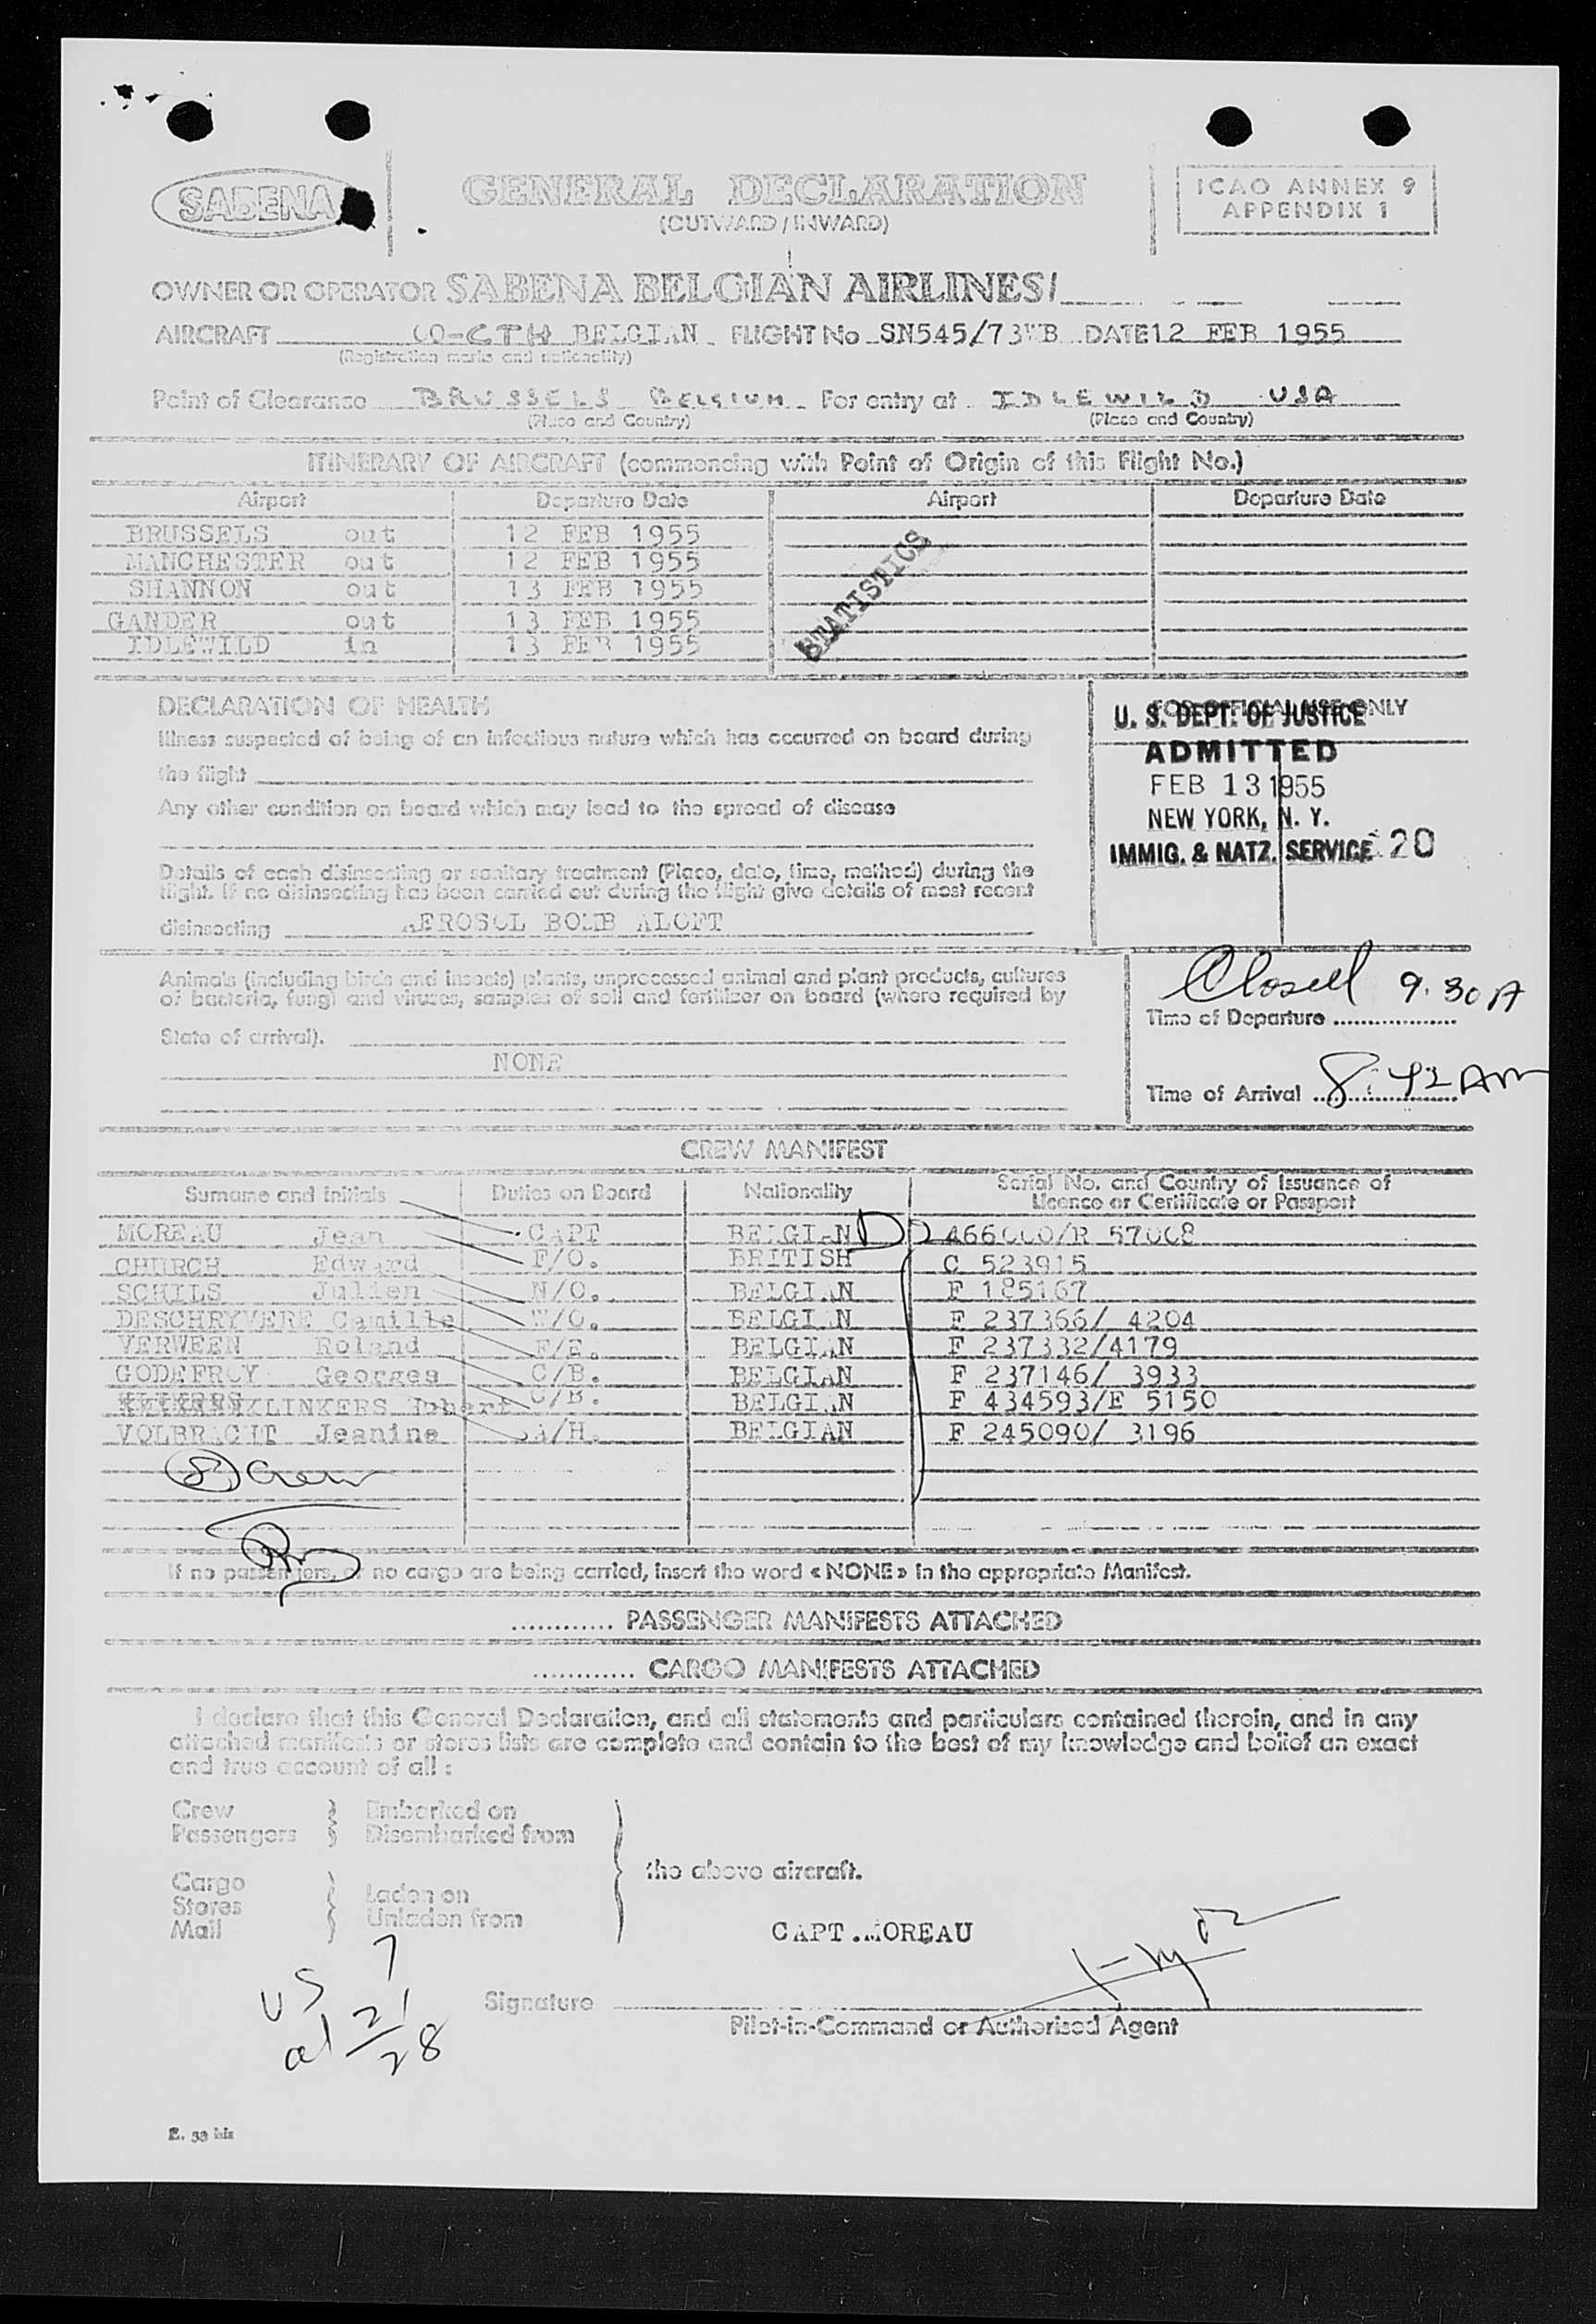 SABENA
GENERAL DECLARATION
(OUTWARD / INWARD)
ICAO ANNEX 9
APPENDIX 1
OWNER OR OPERATOR SABENA BELGIAN AIRLINES/
AIRCRAFT OO-CTH BELGIAN FLIGHT No SN545/73 B DATE 12 FEB 1955
(Registration marks and nationality)
Point of Clearance BRUSSELS BELGIUM For entry at IDLEWILD USA
(Place and Country) (Place and Country)
ITINERARY OF AIRCRAFT (commencing with Point of Origin of this Flight No.)
Airport Departure Date Airport Departure Date
BRUSSELS out 12 FEB 1955
MANCHESTER out 12 FEB 1955
SHANNON out 13 FEB 1955
GANDER out 13 FEB 1955
IDLEWILD in 13 FEB 1955
STATISTICS
DECLARATION OF HEALTH
Illness suspected of being of an infectious nature which has occurred on board during
the flight
Any other condition on board which may lead to the spread of disease
Details of each disinsecting or sanitary treatment (Place, date, time, method) during the
flight. If no disinsecting has been carried out during the flight give details of most recent
disinsecting AEROSOL BOMB ALOFT
FOR OFFICIAL USE ONLY
U. S. DEPT. OF JUSTICE
ADMITTED
FEB 13 1955
NEW YORK, N. Y.
IMMIG. & NATZ. SERVICE 20
Animals (including birds and insects) plants, unprocessed animal and plant products, cultures
of bacteria, fungi and viruses, samples of soil and fertilizer on board (where required by
State of arrival).
NONE
Closed 9.30 A
Time of Departure
Time of Arrival 8:42 AM
CREW MANIFEST
Surname and initials Duties on Board Nationality Serial No. and Country of Issuance of
Licence or Certificate or Passport
MOREAU Jean CAPT BELGIAN 466000/R 57008
CHURCH Edward F/O. BRITISH C 523915
SCHILS Julien N/O. BELGIAN F 185167
DESCHRYVERE Camille W/O. BELGIAN F 237366/ 4204
VERWEEN Roland F/E. BELGIAN F 237332/4179
GODEFROY Georges C/B. BELGIAN F 237146/ 3933
KLINKERS Hubert C/B. BELGIAN F 434593/E 5150
VOLBRACHT Jeanine A/H. BELGIAN F 245090/ 3196
(8) Crew
If no passengers, or no cargo are being carried, insert the word « NONE » in the appropriate Manifest.
............ PASSENGER MANIFESTS ATTACHED
............ CARGO MANIFESTS ATTACHED
I declare that this General Declaration, and all statements and particulars contained therein, and in any
attached manifests or stores lists are complete and contain to the best of my knowledge and belief an exact
and true account of all :
Crew Embarked on
Passengers Disembarked from
the above aircraft.
Cargo
Stores Laden on
Mail Unladen from
CAPT.MOREAU
US 7
al 21
28
Signature
Pilot-in-Command or Authorised Agent
E. 33 bis